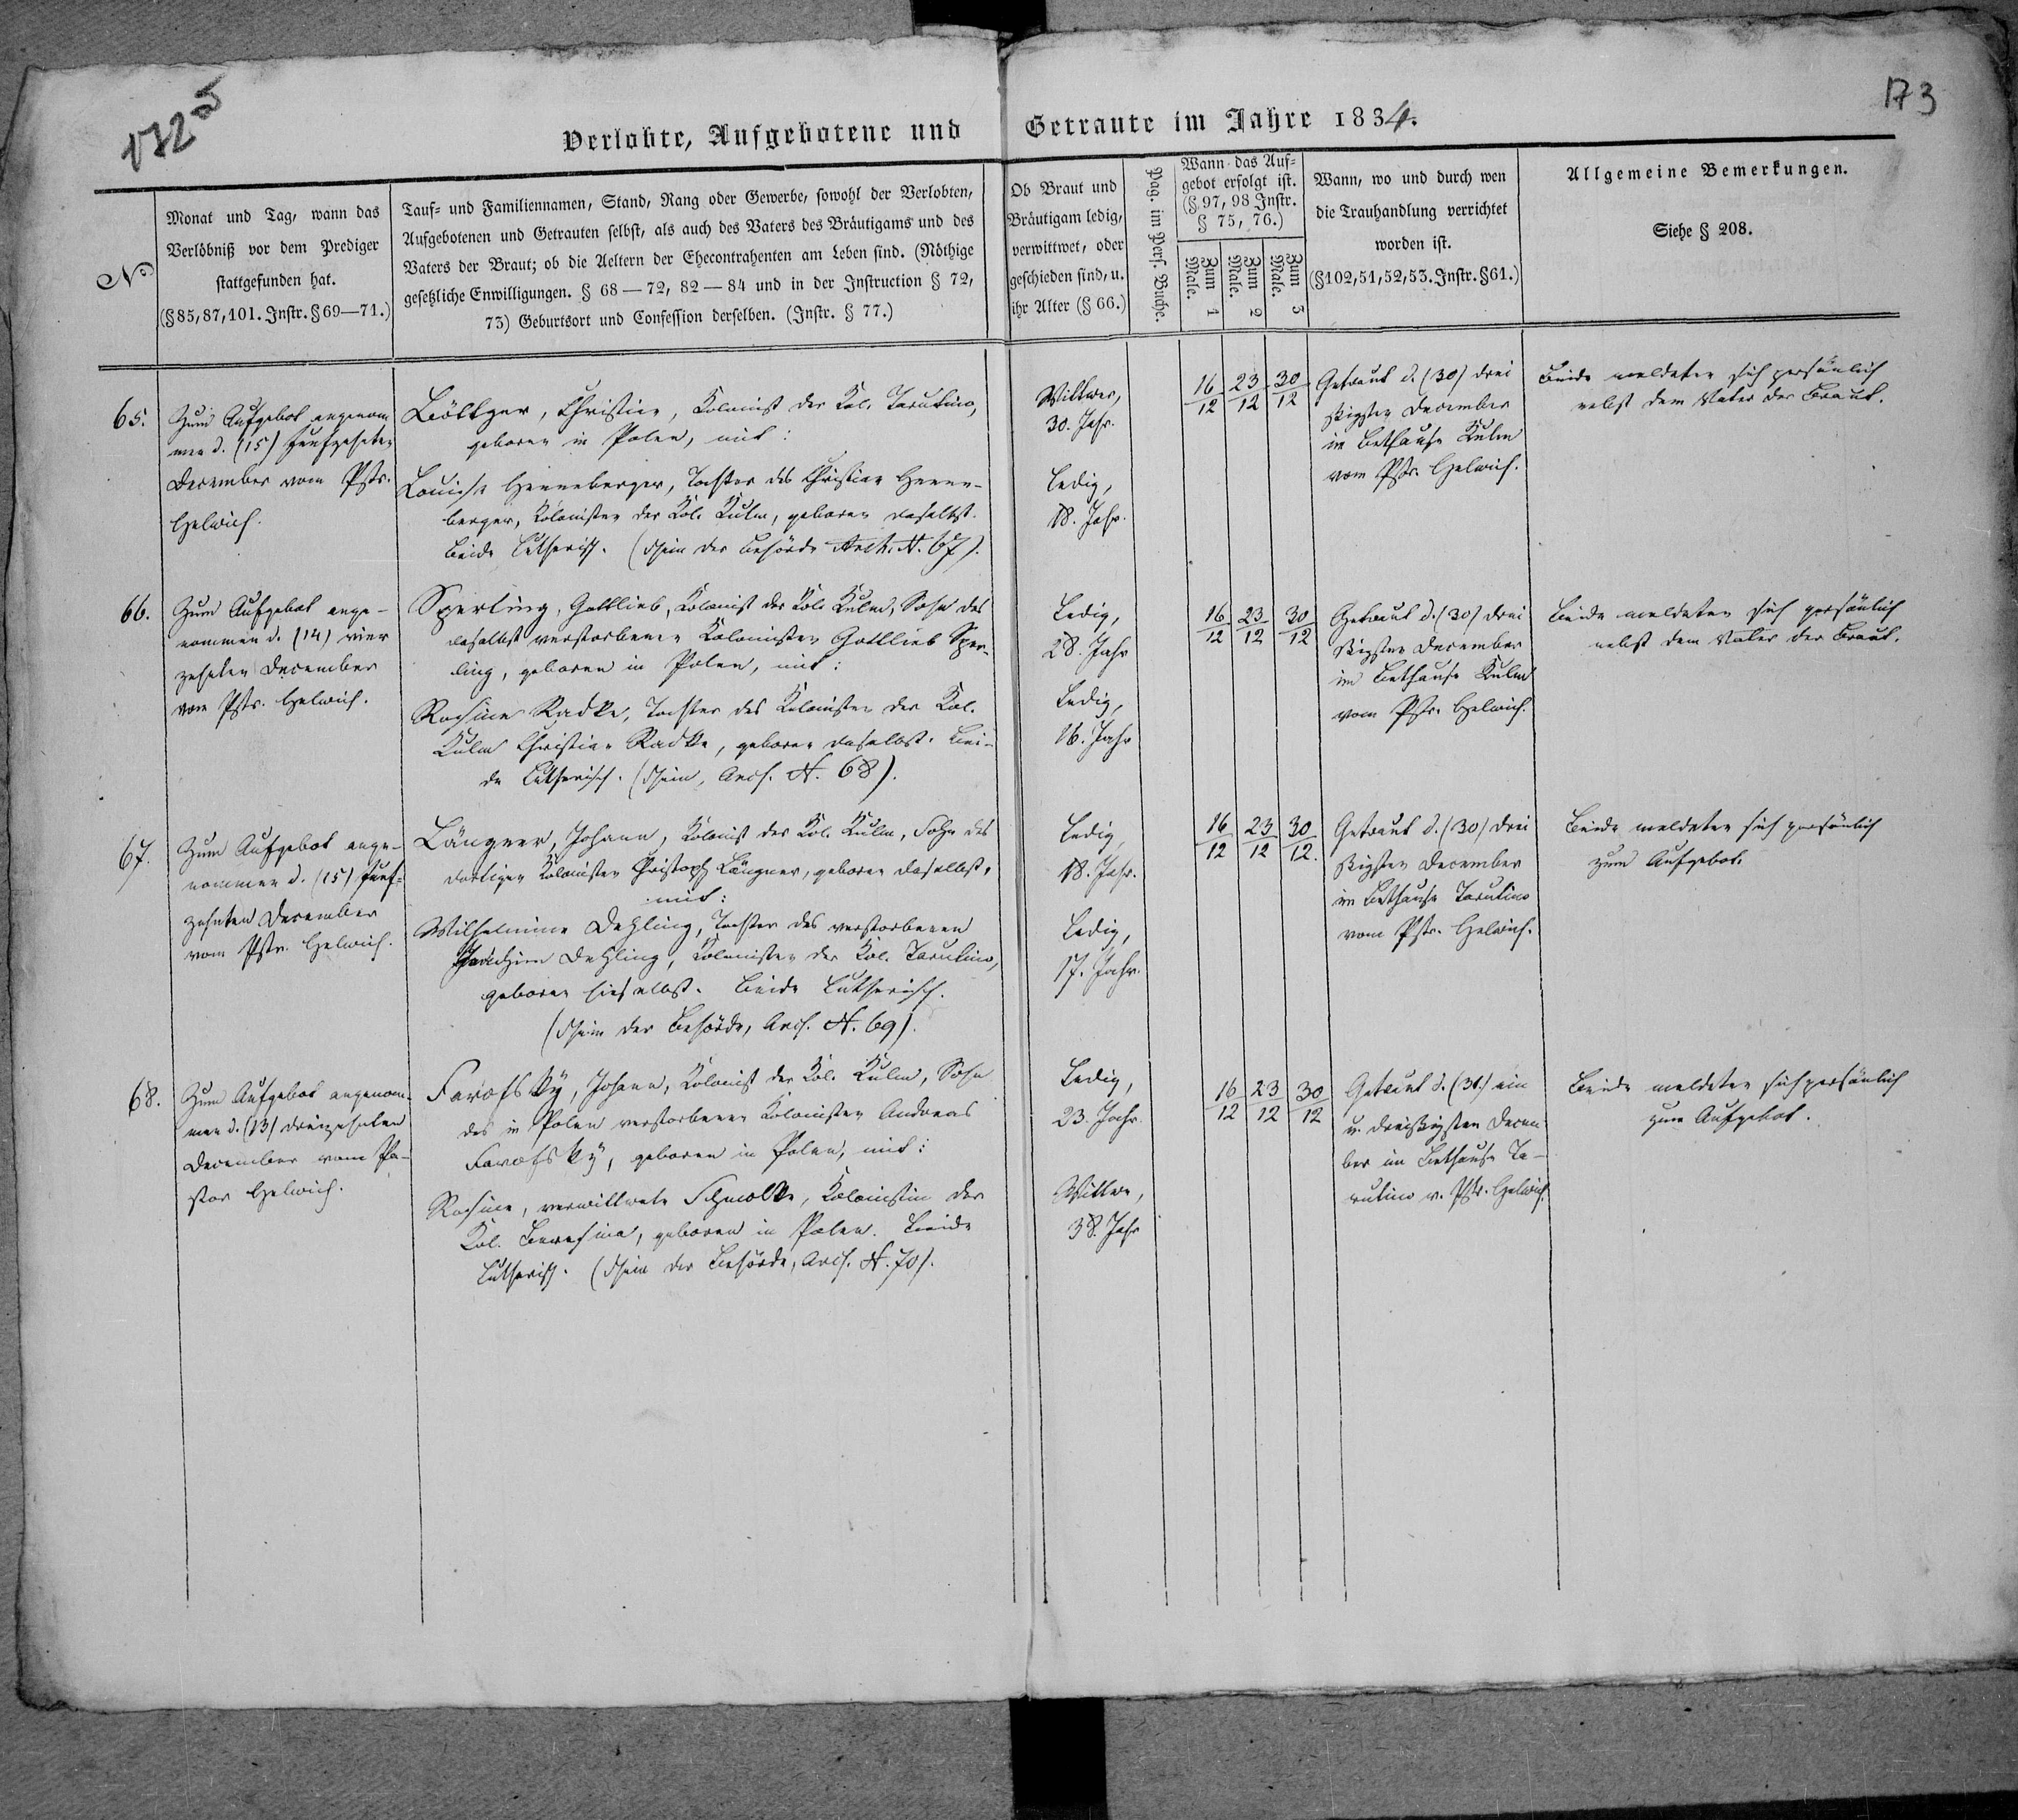 173
Verlobte, Aufgebotene und Getraute im Jahre 1834.
No
Monat und Tag, wann das
Verlöbniß vor dem Prediger
stattgefunden hat.
(§85,87,101. Instr. §69—71.)
Tauf- und Familiennamen, Stand, Rang oder Gewerbe, sowohl der Verlobten,
Aufgebotenen und Getrauten selbst, als auch des Vaters des Bräutigams und des
Vaters der Braut; ob die Aeltern der Ehecontrahenten am Leben sind. (Nöthige
gesetzliche Enwilligungen. § 68—72, 82—84 und in der Instruction § 72,
73) Geburtsort und Confession derselben. (Instr. § 77.)
Ob Braut und
Bräutigam ledig,
verwittwet, oder
geschieden sind, u.
ihr Alter (§ 66.)
Pag. im Pers. Buche.
Wann das Auf-
gebot erfolgt ist.
(§ 97, 98 Instr.
§ 75, 76.)
Zum 1 Male.
Zum 2 Male.
Zum 3 Male.
Wann, wo und durch wen
die Trauhandlung verrichtet
worden ist.
(§102,51,52,53. Instr. §61.)
Allgemeine Bemerkungen.
Siehe § 208.
65.
Zum Aufgebot angenom
men d. (15) funfzehnten
December vom Pstr.
Helwich.
Böttger, Christian, Kolonist der Kol. Tarutino,
geboren in Polen, mit:
Louise Henneberger, Tochter des Christian Henne-
berger, Kolonisten der Kol. Kulm, geboren daselbst.
Beide Lutherisch. (Schein der Behörde Arch. N. 67).
Wittwer,
30. Jahr.
Ledig,
18. Jahr.
16/12 23/12 30/12
Getraut d. (30) drei
ßigsten December
im Bethause Kulm
vom Pstr. Helwich.
Beide meldeten sich persönlich
nebst dem Vater der Braut.
66.
Zum Aufgebot ange-
nommen d. (14) vier
zehnten December
vom Pstr. Helwich.
Sperling, Gottlieb, Kolonist der Kol. Kulm, Sohn des
daselbst verstorbenen Kolonisten Gottlieb Sper-
ling, geboren in Polen, mit:
Rosine Radke, Tochter des Kolonisten der Kol.
Kulm Christian Radke, geboren daselbst. Bei-
de Lutherisch. (Schein, Arch. N. 68).
Ledig,
28. Jahr
Ledig,
16. Jahr
16/12 23/12 30/12
Getraut d. (30) drei
ßigsten December
im Bethause Kulm
vom Pstr. Helwich.
Beide meldeten sich persönlich
nebst dem Vater der Braut.
67.
Zum Aufgebot ange-
nommen d. (15) funf-
zehnten December
vom Pstr. Helwich.
Längner, Johann, Kolonist der Kol. Kulm, Sohn des
dortigen Kolonisten Christoph Längner, geboren daselbst,
mit:
Wilhelmine Detzling, Tochter des verstorbenen
Detzling, Kolonisten der Kol. Tarutino,
geboren hieselbst. Beide Lutherisch.
(Schein der Behörde, Arch. N. 69).
Ledig,
18. Jahr.
Ledig,
17. Jahr.
16/12 23/12 30/12.
Getraut d. (30) drei
ßigsten December
im Bethause Tarutino
vom Pstr. Helwich.
Beide meldeten sich persönlich
zum Aufgebot.
68.
Zum Aufgebot angenom-
men d. (13) dreizehnten
December vom Pa-
stor Helwich.
Farofsky, Johann, Kolonist der Kol. Kulm, Sohn
des in Polen verstorbenen Kolonisten Andreas
Farofsky, geboren in Polen, mit:
Rosine, verwittwete Schmolke, Kolonistin der
Kol. Beresina, geboren in Polen. Beide
Lutherisch. (Schein der Behörde, Arch. N. 70).
Ledig,
23. Jahr
Wittwe,
38. Jahr
16/12 23/12 30/12
Getraut d. (31.) ein
u. dreißigsten Decem
ber im Bethause Ta-
rutino v. Pstr. Helwich.
Beide meldeten sich persönlich
zum Aufgebot.